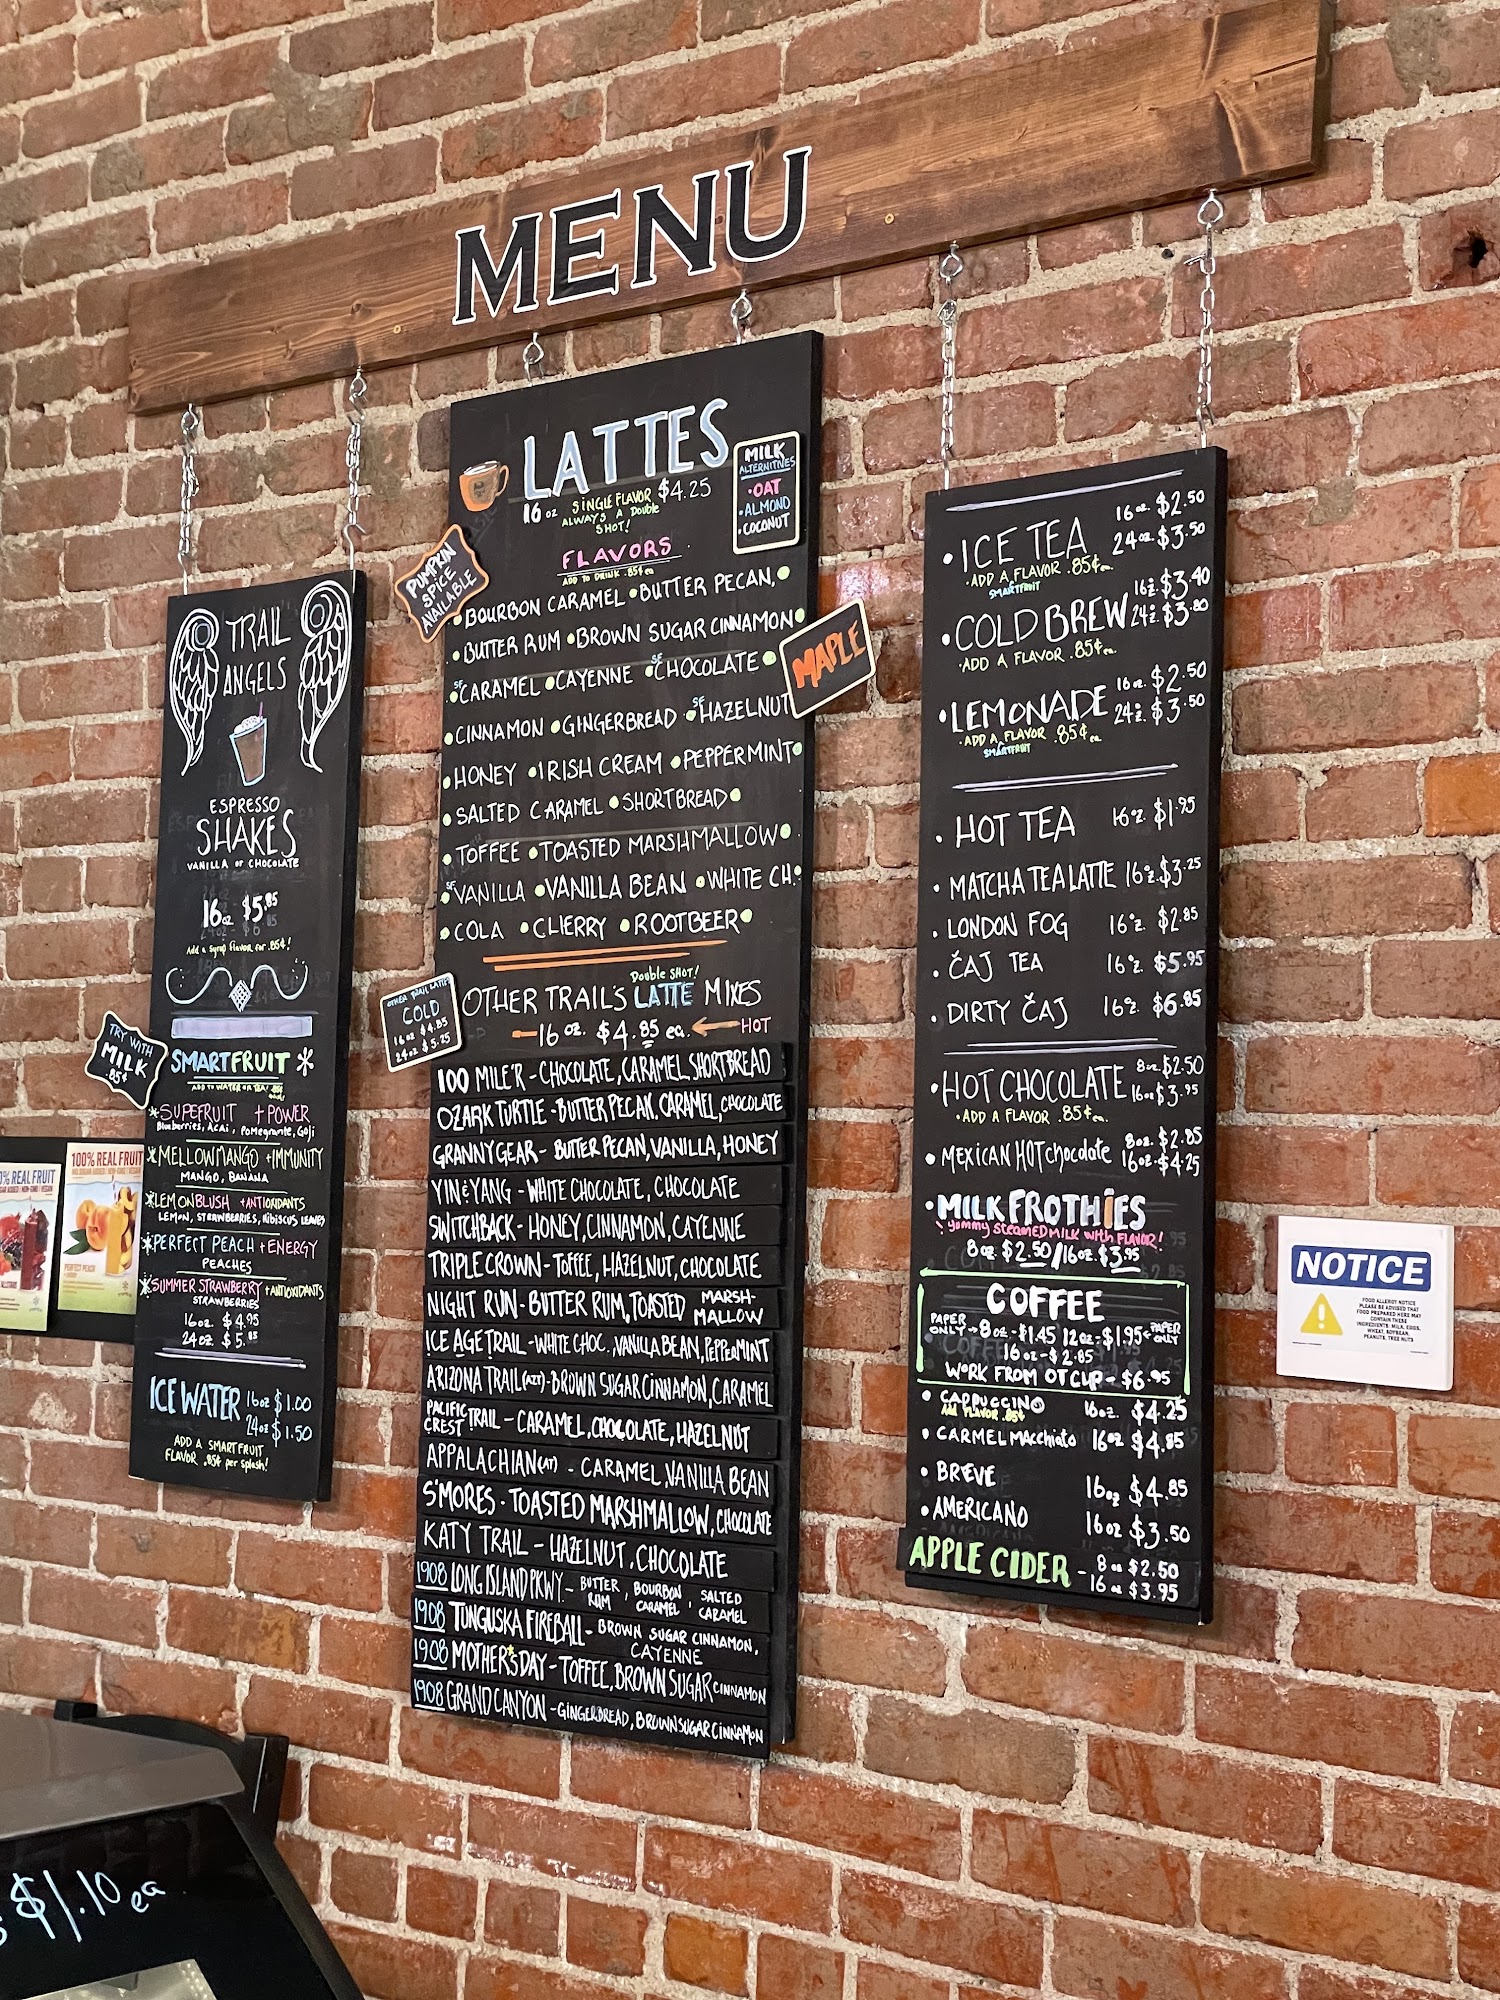 MENU
TRAIL
ANGELS
ESPRESSO
SHAKES
VANILLA or CHOCOLATE
16oz $5.85
Add a syrup flavor for .85¢!
TRY WITH
MILK
.85¢
SMARTFRUIT *
ADD TO WATER OR TEA! .85¢
*SUPEFRUIT + POWER
Blueberries, Acai, Pomegrante, Goji
*MELLOWMANGO +IMMUNITY
MANGO, BANANA
*LEMONBLUSH +ANTIOXIDANTS
LEMON, STRAWBERRIES, HIBISCUS LEAVES
*PERFECT PEACH +ENERGY
PEACHES
*SUMMER STRAWBERRY +ANTIOXIDANTS
STRAWBERRIES
16oz $4.95
24oz $5.
ICE WATER 16oz $1.00
24oz $1.50
ADD A SMARTFRUIT
FLAVOR .85¢ per splash!
LATTES
16oz SINGLE FLAVOR $4.25
ALWAYS A Double
SHOT!
MILK
ALTERNITIVES
•OAT
•ALMOND
•COCONUT
PUMPKIN
SPICE
AVAILABLE
FLAVORS
ADD TO DRINK .85¢ ea
•BOURBON CARAMEL •BUTTER PECAN,•
•BUTTER RUM •BROWN SUGAR CINNAMON•
•SF CARAMEL •CAYENNE •SF CHOCOLATE•
MAPLE
•CINNAMON •GINGERBREAD •SF HAZELNUT
•HONEY •IRISH CREAM •PEPPERMINT•
•SALTED CARAMEL •SHORTBREAD•
•TOFFEE •TOASTED MARSHMALLOW•
•SF VANILLA •VANILLA BEAN •WHITE CH.•
•COLA •CHERRY •ROOTBEER•
OTHER TRAIL LATTES
COLD
16oz $4.85
24oz $5.25
Double SHOT!
OTHER TRAIL'S LATTE MIXES
16 oz. $4.85 ea. ← HOT
100 MILE'R - CHOCOLATE, CARAMEL, SHORTBREAD
OZARK TURTLE - BUTTER PECAN, CARAMEL, CHOCOLATE
GRANNY GEAR - BUTTER PECAN, VANILLA, HONEY
YIN & YANG - WHITE CHOCOLATE, CHOCOLATE
SWITCHBACK - HONEY, CINNAMON, CAYENNE
TRIPLE CROWN - TOFFEE, HAZELNUT, CHOCOLATE
NIGHT RUN - BUTTER RUM, TOASTED MARSH-
MALLOW
ICE AGE TRAIL - WHITE CHOC. VANILLA BEAN, PEPPERMINT
ARIZONA TRAIL (AZT) - BROWN SUGAR CINNAMON, CARAMEL
PACIFIC CREST TRAIL - CARAMEL, CHOCOLATE, HAZELNUT
APPALACHIAN (AT) - CARAMEL, VANILLA BEAN
S'MORES - TOASTED MARSHMALLOW, CHOCOLATE
KATY TRAIL - HAZELNUT, CHOCOLATE
1908 LONG ISLAND PKWY. - BUTTER RUM, BOURBON CARAMEL, SALTED CARAMEL
1908 TUNGUSKA FIREBALL - BROWN SUGAR CINNAMON,
CAYENNE
1908 MOTHER'S DAY - TOFFEE, BROWN SUGAR CINNAMON
1908 GRAND CANYON - GINGERBREAD, BROWN SUGAR CINNAMON
•ICE TEA 16oz. $2.50
24oz. $3.50
•ADD A FLAVOR .85¢ ea.
SMARTFRUIT
•COLD BREW 16oz. $3.40
24oz. $3.80
•ADD A FLAVOR .85¢ ea.
•LEMONADE 16oz. $2.50
24oz. $3.50
•ADD A FLAVOR .85¢ ea.
SMARTFRUIT
•HOT TEA 16oz. $1.95
•MATCHA TEA LATTE 16oz. $3.25
•LONDON FOG 16oz. $2.85
•ČAJ TEA 16oz. $5.95
•DIRTY ČAJ 16oz. $6.85
•HOT CHOCOLATE 8oz $2.50
16oz $3.95
•ADD A FLAVOR .85¢ ea.
•MEXICAN HOT chocolate 8oz. $2.85
16oz. $4.25
•MILK FROTHIES
! yummy STEAMED MILK with FLAVOR!
8oz $2.50/16oz. $3.95
COFFEE
PAPER ONLY → 8oz - $1.45 12oz - $1.95 ← PAPER ONLY
16oz - $2.85
WORK FROM OT CUP - $6.95
•CAPPUCCINO 16oz. $4.25
Add FLAVOR .85¢
•CARMEL MAcchiato 16oz $4.85
•BREVE 16oz $4.85
•AMERICANO 16oz $3.50
APPLE CIDER - 8oz $2.50
- 16oz $3.95
NOTICE
FOOD ALLERGY NOTICE
PLEASE BE ADVISED THAT
FOOD PREPARED HERE MAY
CONTAIN THESE
INGREDIENTS: MILK, EGGS,
WHEAT, SOYBEAN,
PEANUTS, TREE NUTS
0% REAL FRUIT
100% REAL FRUIT
PERFECT PEACH
$1.10 ea